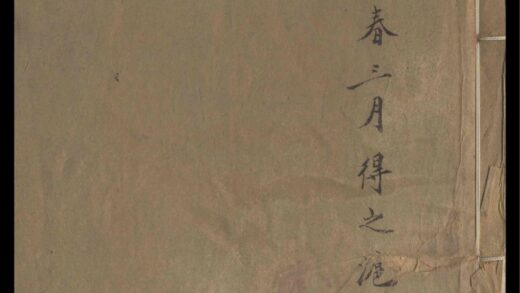 春三月得之滬